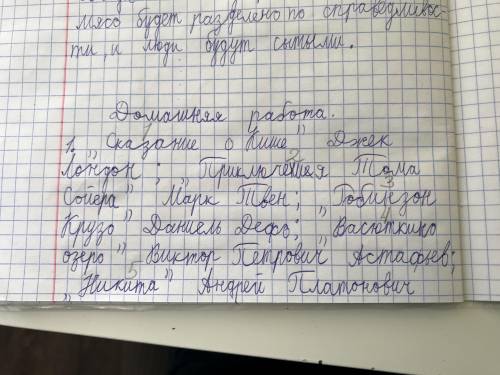 мясо будет разделено по справедливос-
ти, и люди будут сытыми.
Домашняя работа.
1. „Сказание о Кише" Джек
Лондон; „Приключения Тома
Сойера" Марк Твен; „Робинзон
Крузо" Даниель Дефо; „Васюткино
озеро" Виктор Петрович Астафьев;
„Никита" Андрей Платонович